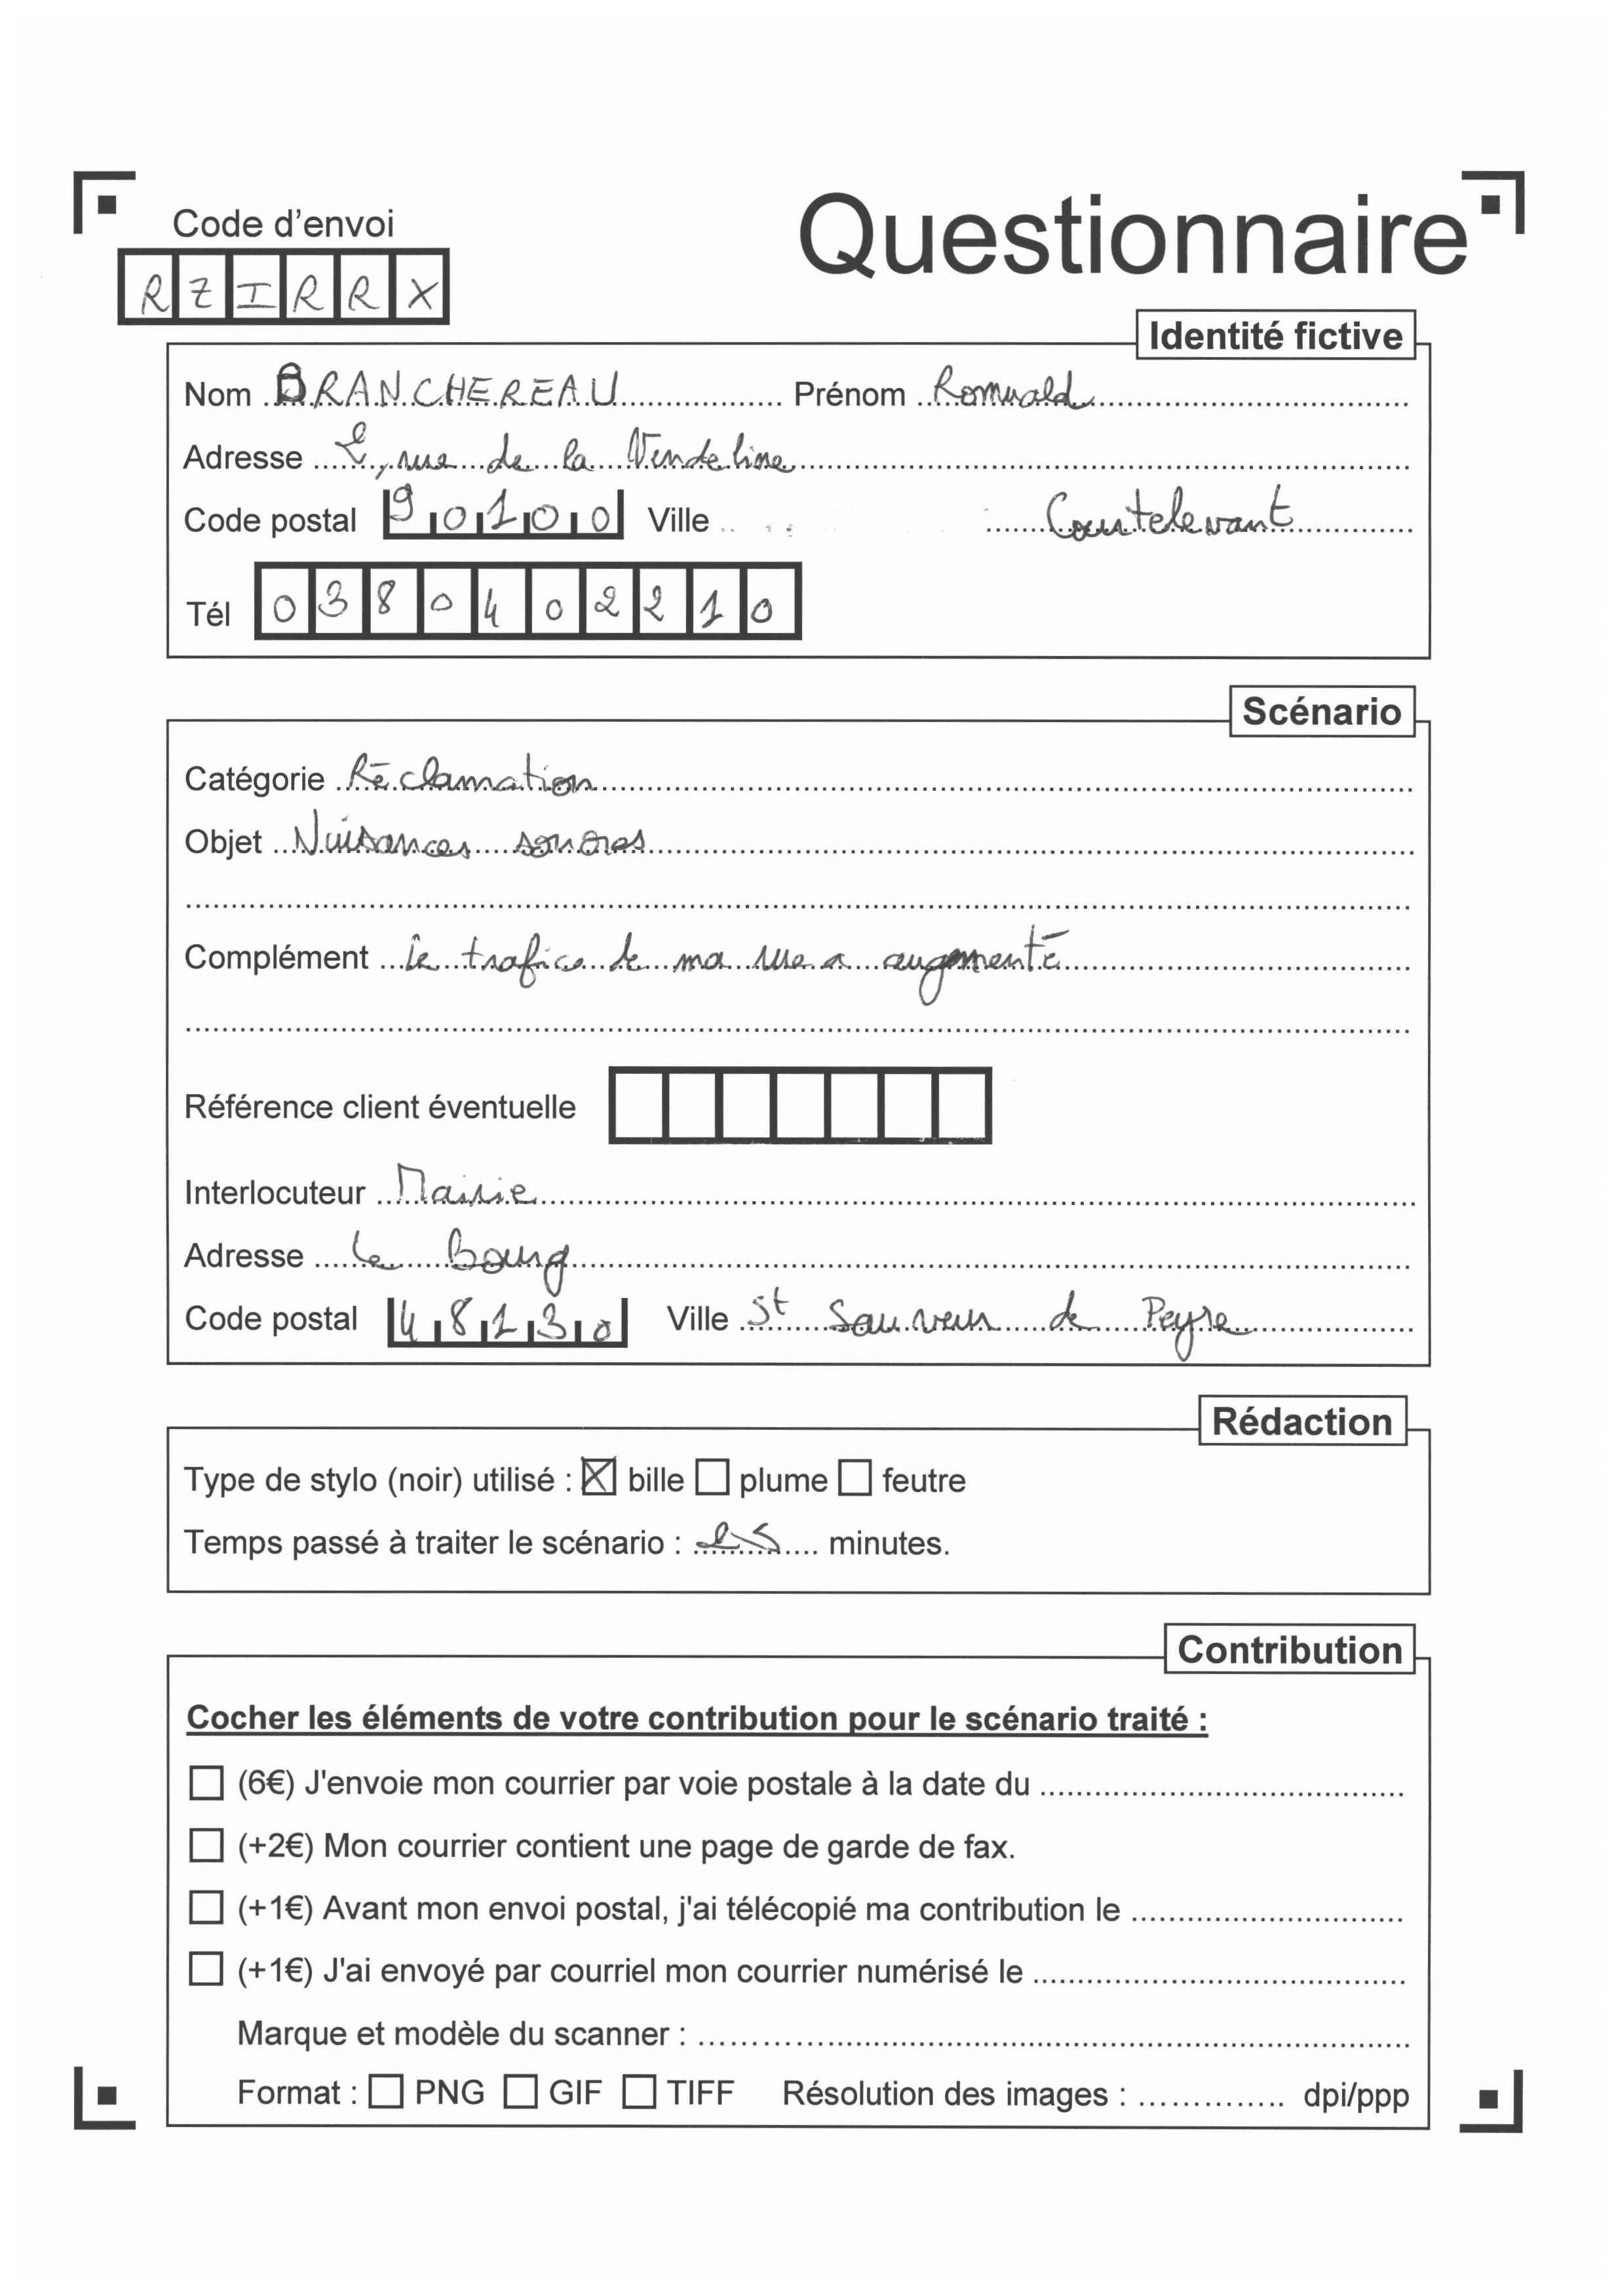 Code d'envoi
RZIRRX
Questionnaire
Identité fictive
Nom BRANCHEREAU Prénom Romuald
Adresse 2, rue de la Vendeline
Code postal 90100 Ville Courtelevant
Tél 0380402210
Scénario
Catégorie Réclamation
Objet Nuisances sonores
Complément le trafic de ma rue a augmenté
Référence client éventuelle
Interlocuteur Mairie
Adresse Le Bourg
Code postal 48130 Ville St Sauveur de Peyre
Rédaction
Type de stylo (noir) utilisé : ☒ bille ☐ plume ☐ feutre
Temps passé à traiter le scénario : 25 minutes.
Contribution
Cocher les éléments de votre contribution pour le scénario traité :
☐ (6€) J'envoie mon courrier par voie postale à la date du
☐ (+2€) Mon courrier contient une page de garde de fax.
☐ (+1€) Avant mon envoi postal, j'ai télécopié ma contribution le
☐ (+1€) J'ai envoyé par courriel mon courrier numérisé le
Marque et modèle du scanner :
Format : ☐ PNG ☐ GIF ☐ TIFF Résolution des images : dpi/ppp